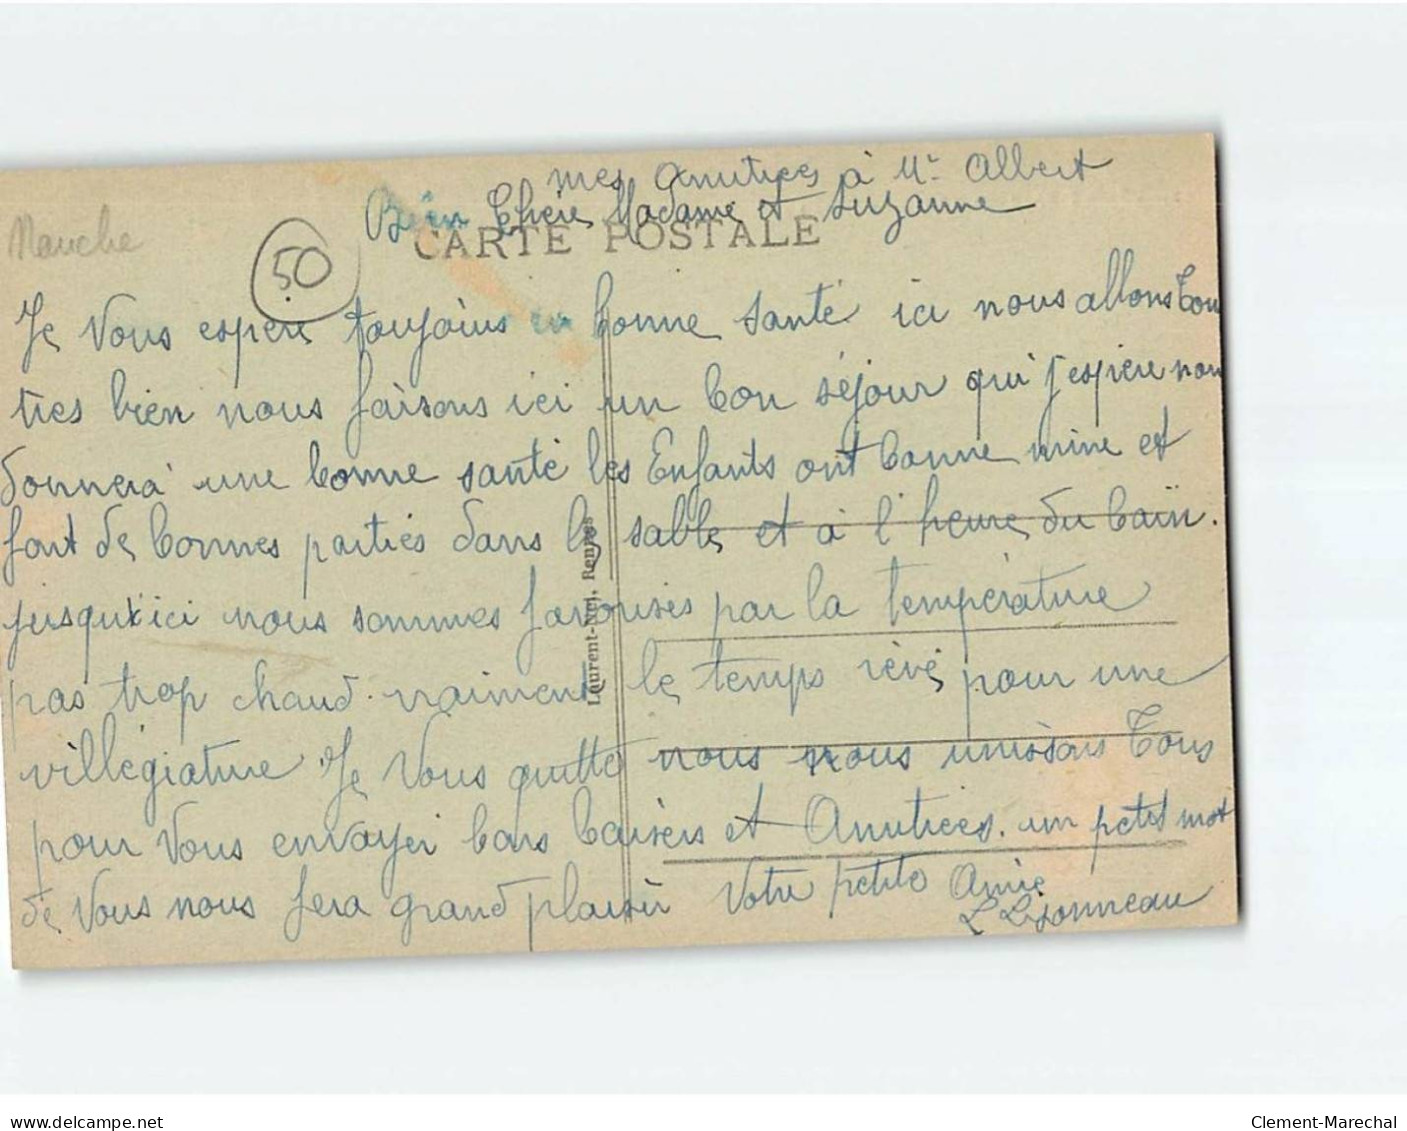 mes Amities à Mr Albert
Bien Chère Madame et Suzanne
CARTE POSTALE
Manche
50
Je Vous espere toujours en bonne Santé ici nous allons Tous
tres bien nous faisons ici un bon séjour qui j'espere nous
donnera une bonne santé les Enfants ont bonne mine et
font de bonnes parties dans le sable et à l'heure du bain.
jusqu'ici nous sommes favorises par la température
pas trop chaud vraiment le temps rêvé pour une
villégiature Je Vous quitte nous nous unissons Tous
pour Vous envoyer bons baisers et Amitiees. un petit mot
de Vous nous fera grand plaisir Votre petite Amie
L Lijonneau
Laurent-Nel, Rennes
delcampe.net
Clement-Marechal